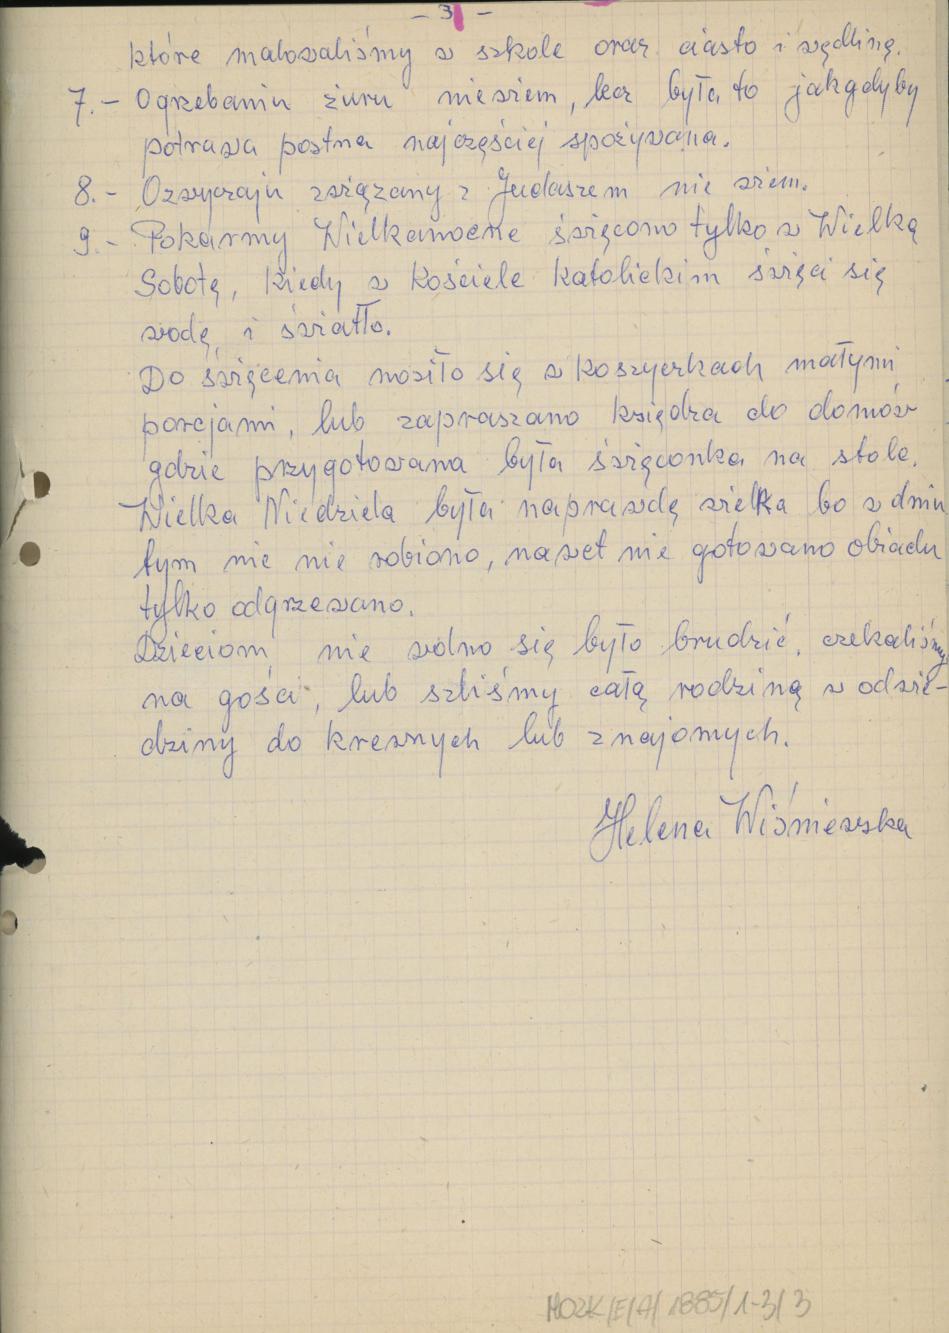 - 3 -
które malowaliśmy w szkole oraz ciasto i wędlinę.
7.- Ogrzebaniu żuru niewiem, lecz była to jakgdyby
potrawa postna najczęściej spożywana.
8.- Ozwyczaju związany z Judaszem nie wiem.
9.- Pokarmy Wielkanocne święcono tylko w Wielką
Sobotę, kiedy w Kościele katolickim święci się
wodę i światło.
Do święcenia nosiło się w koszyczkach małymi
porcjami, lub zapraszano księdza do domów
gdzie przygotowana była święconka na stole.
Wielka Niedziela była naprawdę wielka bo w dniu
tym nic nie robiono, nawet nie gotowano obiadu
tylko odgrzewano.
Dzieciom nie wolno się było brudzić, czekaliśmy
na gości, lub szliśmy całą rodziną w odwie-
dziny do krewnych lub znajomych.
Helena Wiśniewska
MOZK/E/A/1885/1-3/3